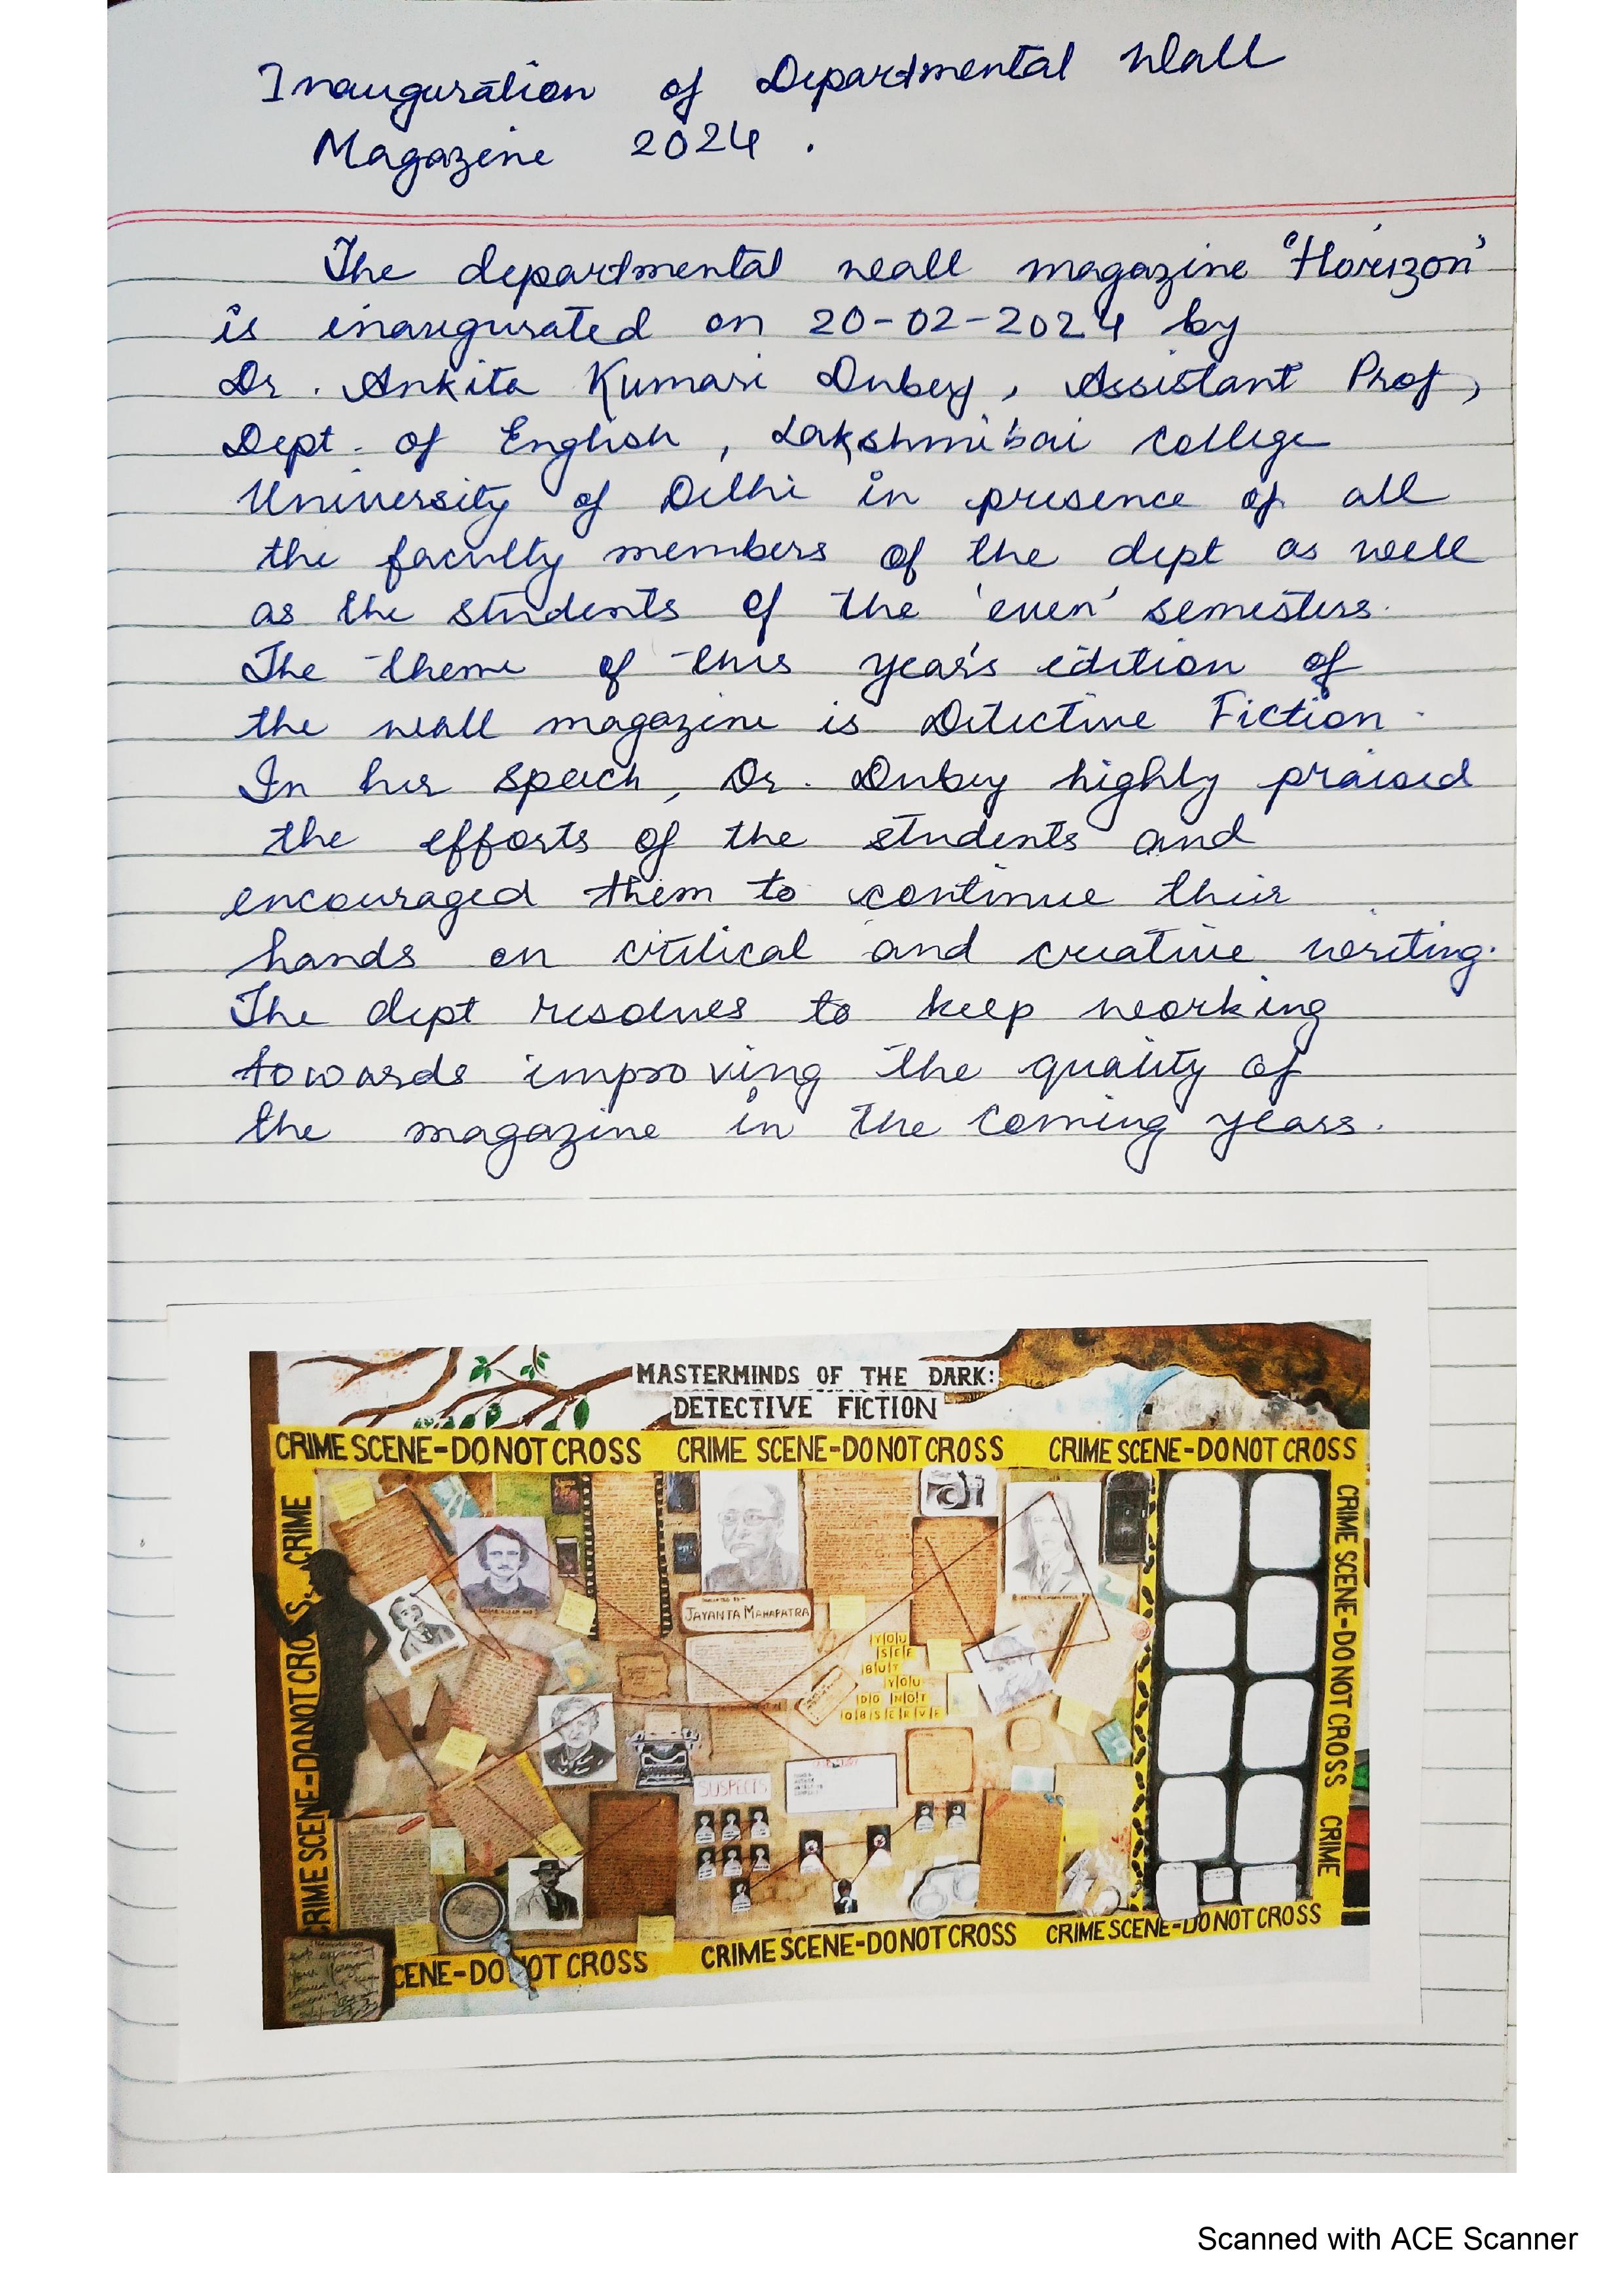 Inauguration of Departmental Wall
Magazine 2024.
The departmental wall magazine 'Horizon'
is inaugurated on 20-02-2024 by
Dr. Ankita Kumari Dubey, Assistant Prof,
Dept. of English, Lakshmibai College
University of Delhi in presence of all
the faculty members of the dept as well
as the students of the 'even' semesters.
The theme of this year's edition of
the wall magazine is Detective Fiction.
In her speech, Dr. Dubey highly praised
the efforts of the students and
encouraged them to continue their
hands on critical and creative writing.
The dept resolves to keep working
towards improving the quality of
the magazine in the coming years.
MASTERMINDS OF THE DARK:
DETECTIVE FICTION
CRIME SCENE-DO NOT CROSS CRIME SCENE-DO NOT CROSS CRIME SCENE-DO NOT CROSS
CRIME SCENE-DO NOT CROSS CRIME
CRIME SCENE-DO NOT CROSS CRIME
JAYANTA MAHAPATRA
YOU
SEE
BUT
YOU
DO NOT
OBSERVE
SUSPECTS
SCENE-DO NOT CROSS CRIME SCENE-DO NOT CROSS CRIME SCENE-DO NOT CROSS
Scanned with ACE Scanner